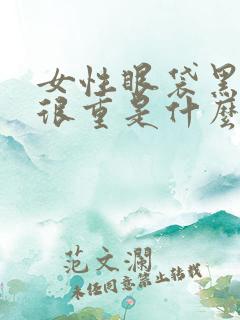 女性眼袋黑
很重是什麼
范文瀾
未经同意禁止转载